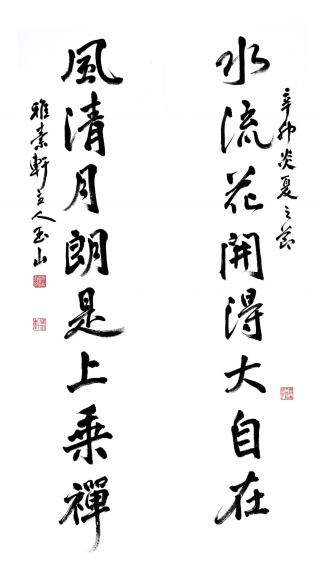 辛卯炎夏之節
水流花開得大自在
風清月朗是上乘禪
雅素軒主人玉山